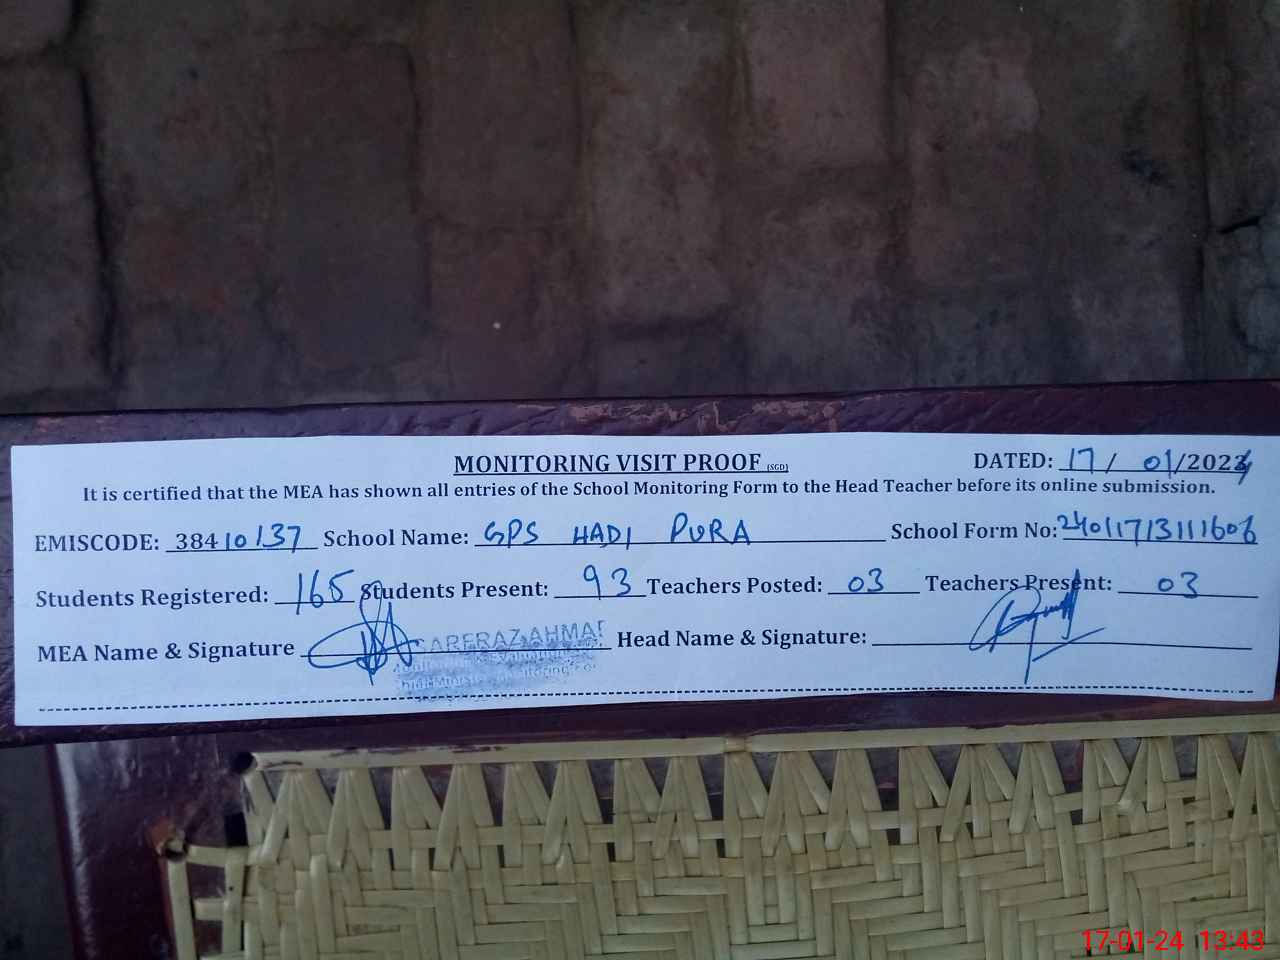 MONITORING VISIT PROOF (SGD) DATED: 17/ 01/2024
It is certified that the MEA has shown all entries of the School Monitoring Form to the Head Teacher before its online submission.
EMISCODE: 38410137 School Name: GPS HADI PURA School Form No:
Students Registered: 165 Students Present: 93 Teachers Posted: 03 Teachers Present: 03
MEA Name & Signature SARFRAZ AHMAD Head Name & Signature:
17-01-24 13:43